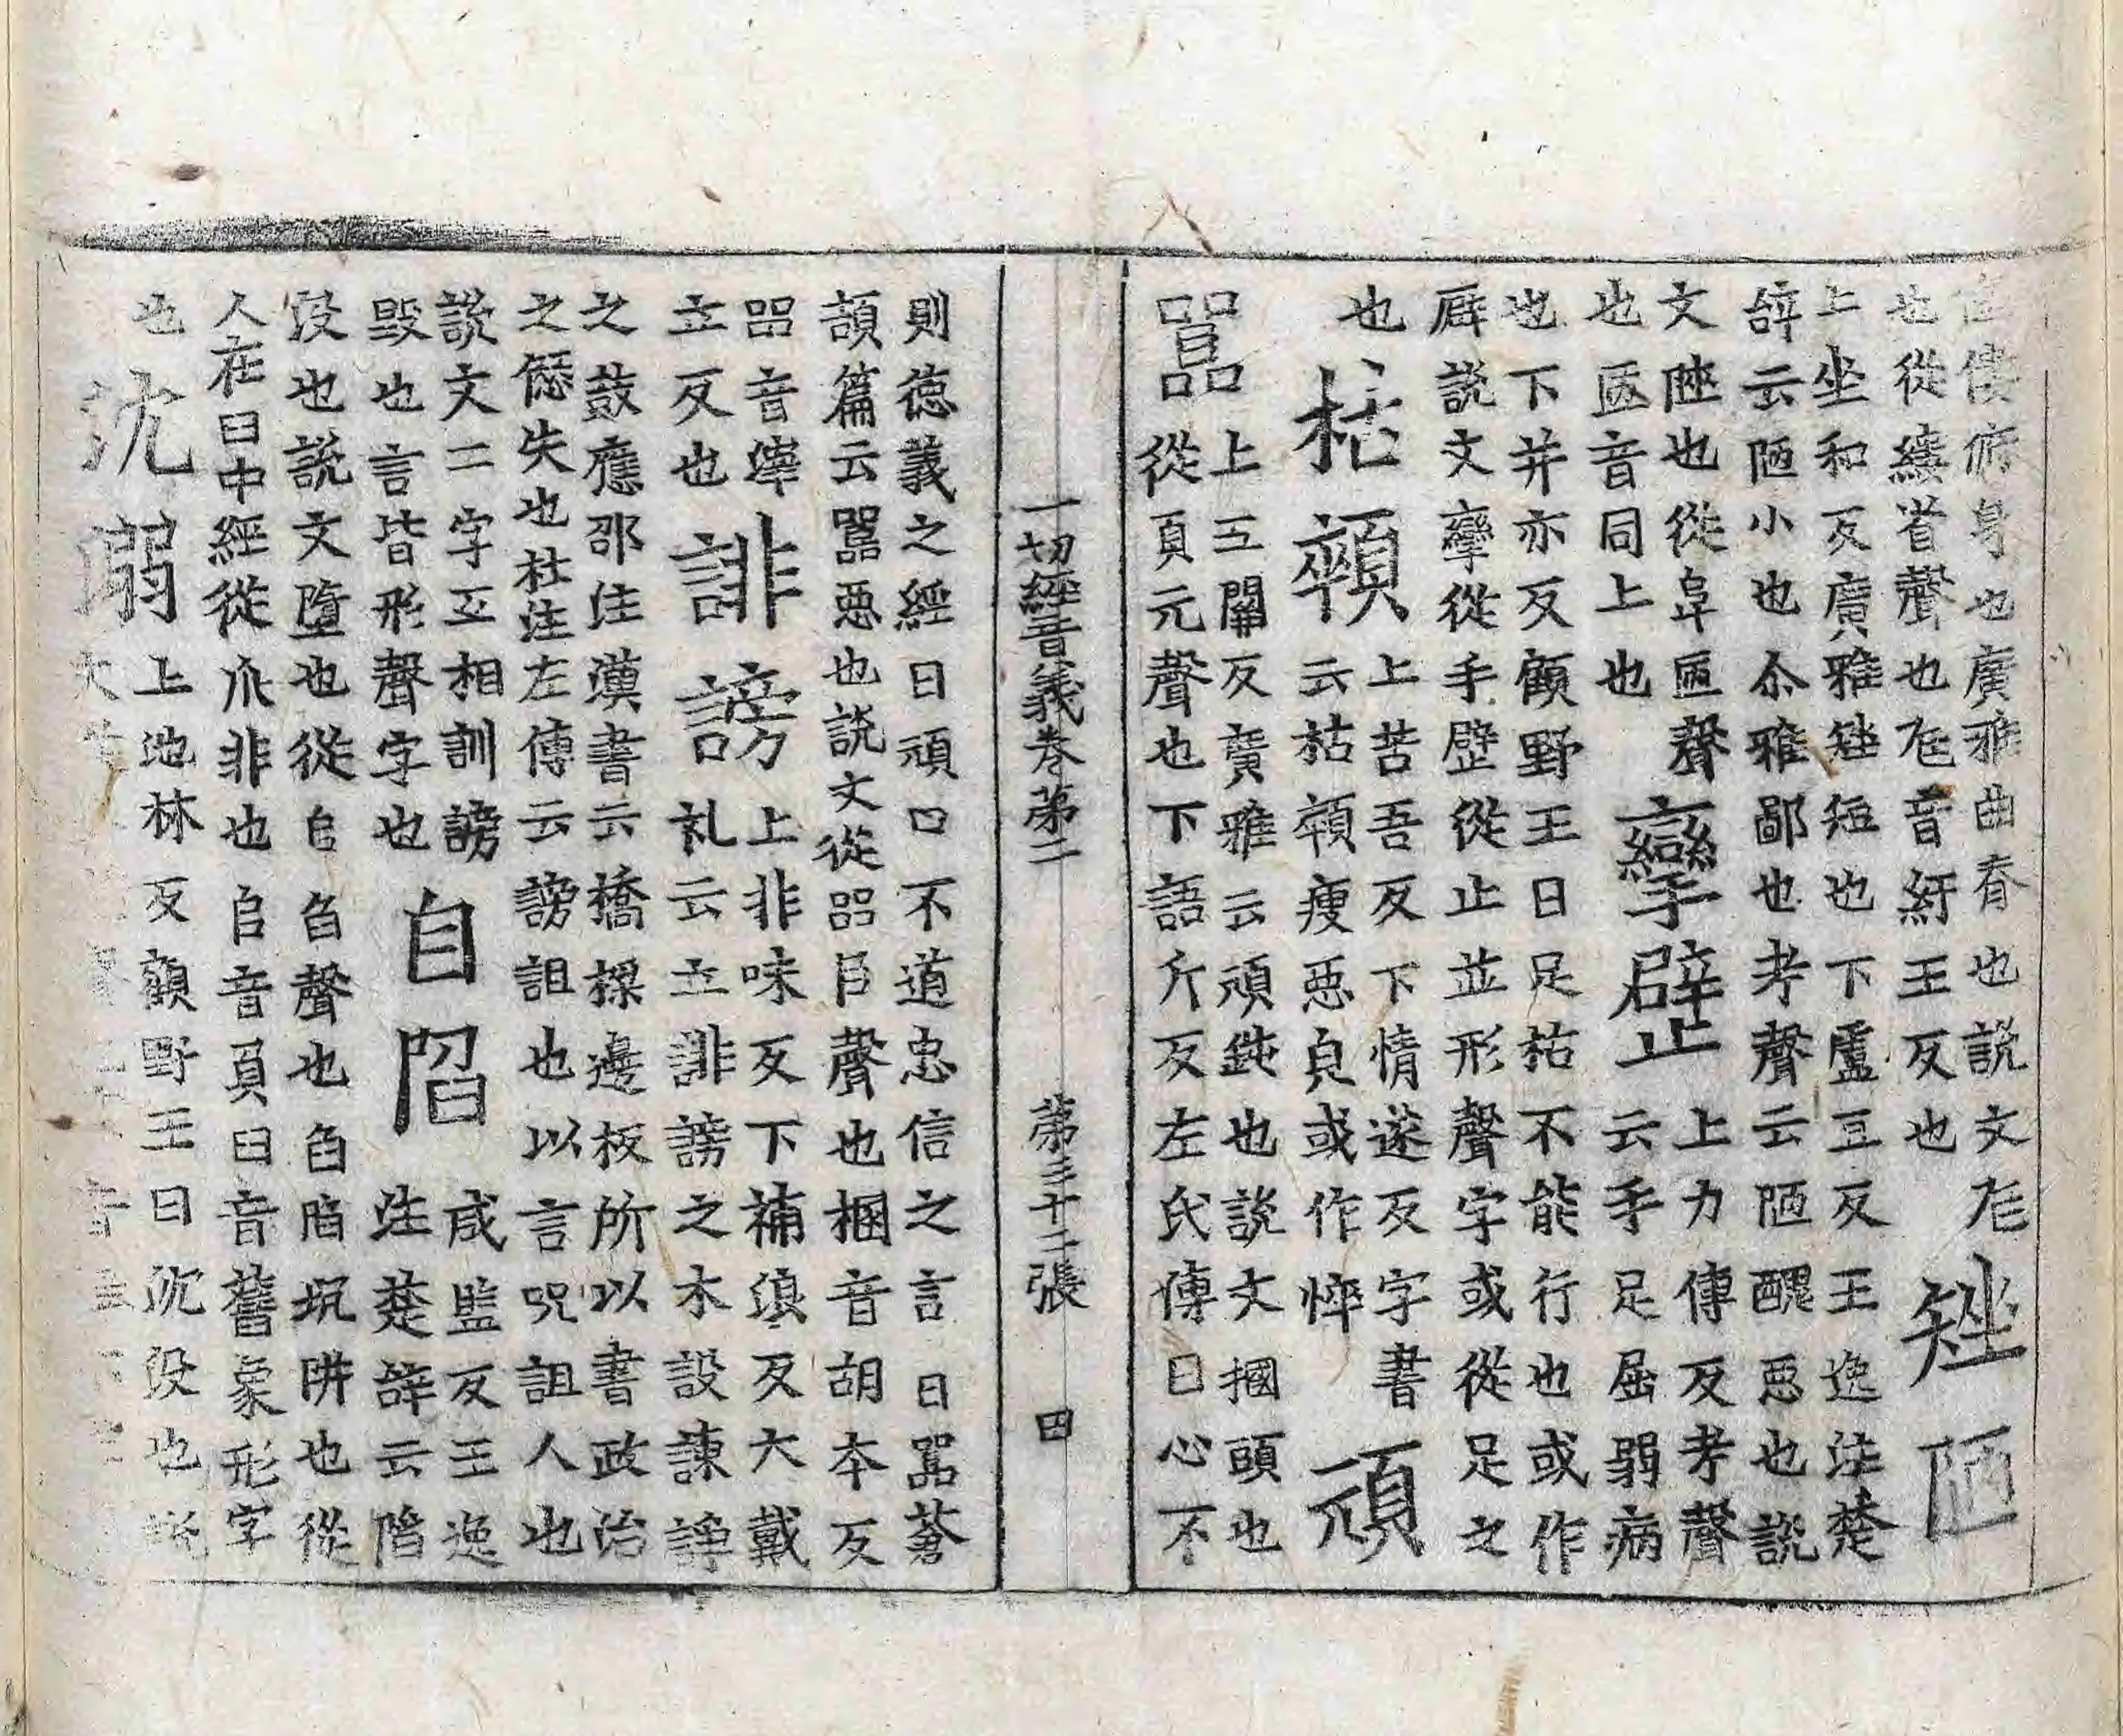 僂俯身也廣雅曲脊也說文尫
也從縷省聲也尫音紆王反也
矬陋
上坐和反廣雅矬短也下盧豆反王逸注楚
辝云陋小也尒雅鄙也考聲云陋醜惡也說
文陋也從阜㔷聲
也㔷音同上也
攣躄
上力傳反考聲
云手足屈弱病
也下并亦反顧野王曰足枯不能行也或作
䠢說文攣從手躄從止並形聲字或從足之
也
枯顇
上苦吾反下情遂反字書
云枯顇瘦惡皃或作悴
頑嚚
上五關反廣雅云頑鈍也說文棞頭也
從頁元聲也下語斤反左氏傳曰心不
則德義之經曰頑口不道忠信之言曰嚚蒼
頡篇云嚚惡也說文從㗊臣聲也棞音胡本反
㗊音
立反也
誹謗
上非味反下補浪反大戴
礼云立誹謗之木設諫諍
之鼓應邵注漢書云橋探邊板所以書政治
之𠍴失也杜注左傳云謗詛也以言呪詛人也
說文二字互相訓謗
毀也言皆形聲字也
自陷
咸監反王逸
注楚辝云陷
沒也說文墮也從𨸏臽聲也臽陷坑阱也從
人在臼中經從爪非也𨸏音負臼音舊象形字
也
沈溺
上池林反顧野王曰沈沒也說
一切經音義卷第二 第三十二張 四